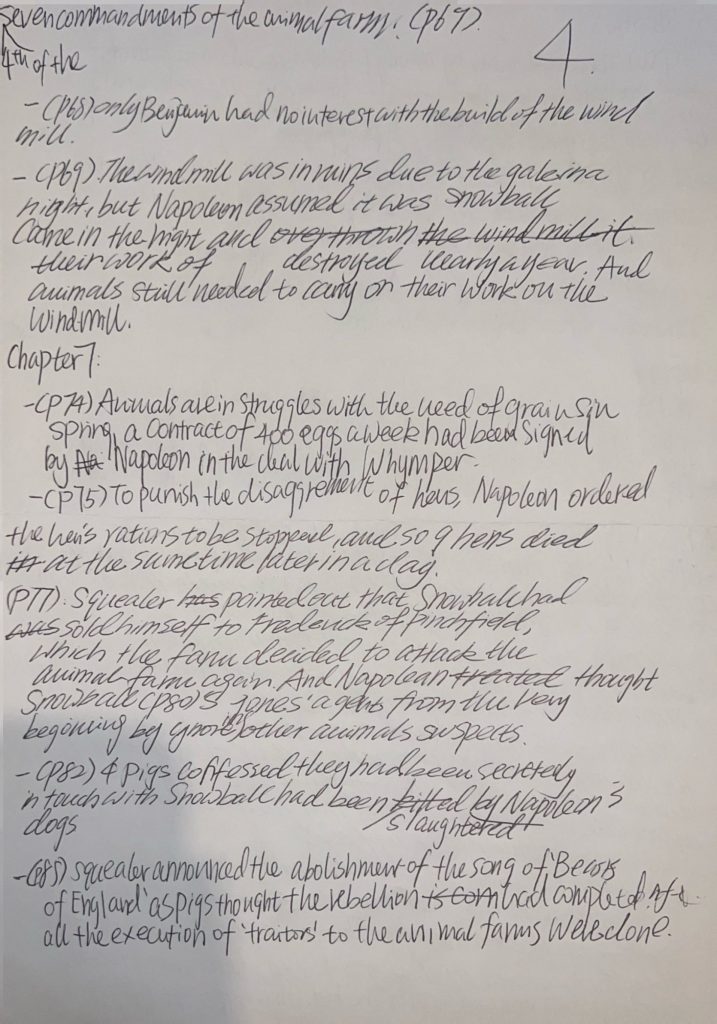 Seven commandments of the animal farm. (P67).
4th of the
4.
- (P68) only Benjamin had no interest with the build of the wind
mill.
- (P69). The windmill was in ruins due to the gales in a
night, but Napoleon assumed it was Snowball
came in the night and overthrown the wind mill it.
their work of destroyed nearly a year. And
animals still needed to carry on their work on the
windmill.
Chapter 7:
- (P74) Animals are in struggles with the need of grains in
spring, a contract of 400 eggs a week had been signed
by Na Napoleon in the deal with Whymper.
- (P75) To punish the disaggrement of hens, Napoleon ordered
the hen's rations to be stopped, and so 9 hens died
in at the sametime later in a day.
(P77). Squealer has pointed out that Snowball had
was sold himself to Frederick of Pinchfield,
which the farm decided to attack the
animal farm again. And Napolean treated thought
Snowball (P80)'s Jones' agent from the very
begining by ignoring other animals suspects.
- (P82) 4 pigs coffessed they had been secretely
in touch with Snowball had been killed by Napoleon's
slaughtered
dogs
- (P85) squealer announced the abolishment of the song of 'Beasts
of England' as pigs thought the rebellion is com had completed. After
all the execution of 'traitors' to the animal farms were done.